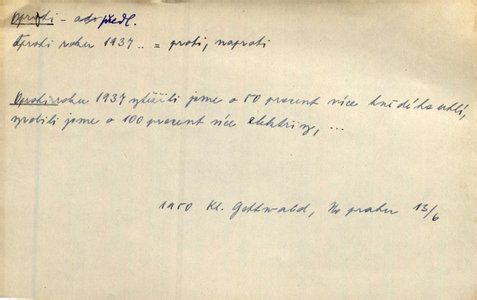 oproti - předl.
Oproti roku 1937 .. = proti, naproti
Oproti roku 1937 vytěžili jsme o 50 procent více hnědého uhlí,
vyrobili jsme o 100 procent více elektřiny, ...
1950 Kl. Gottwald, Na prahu 13/6